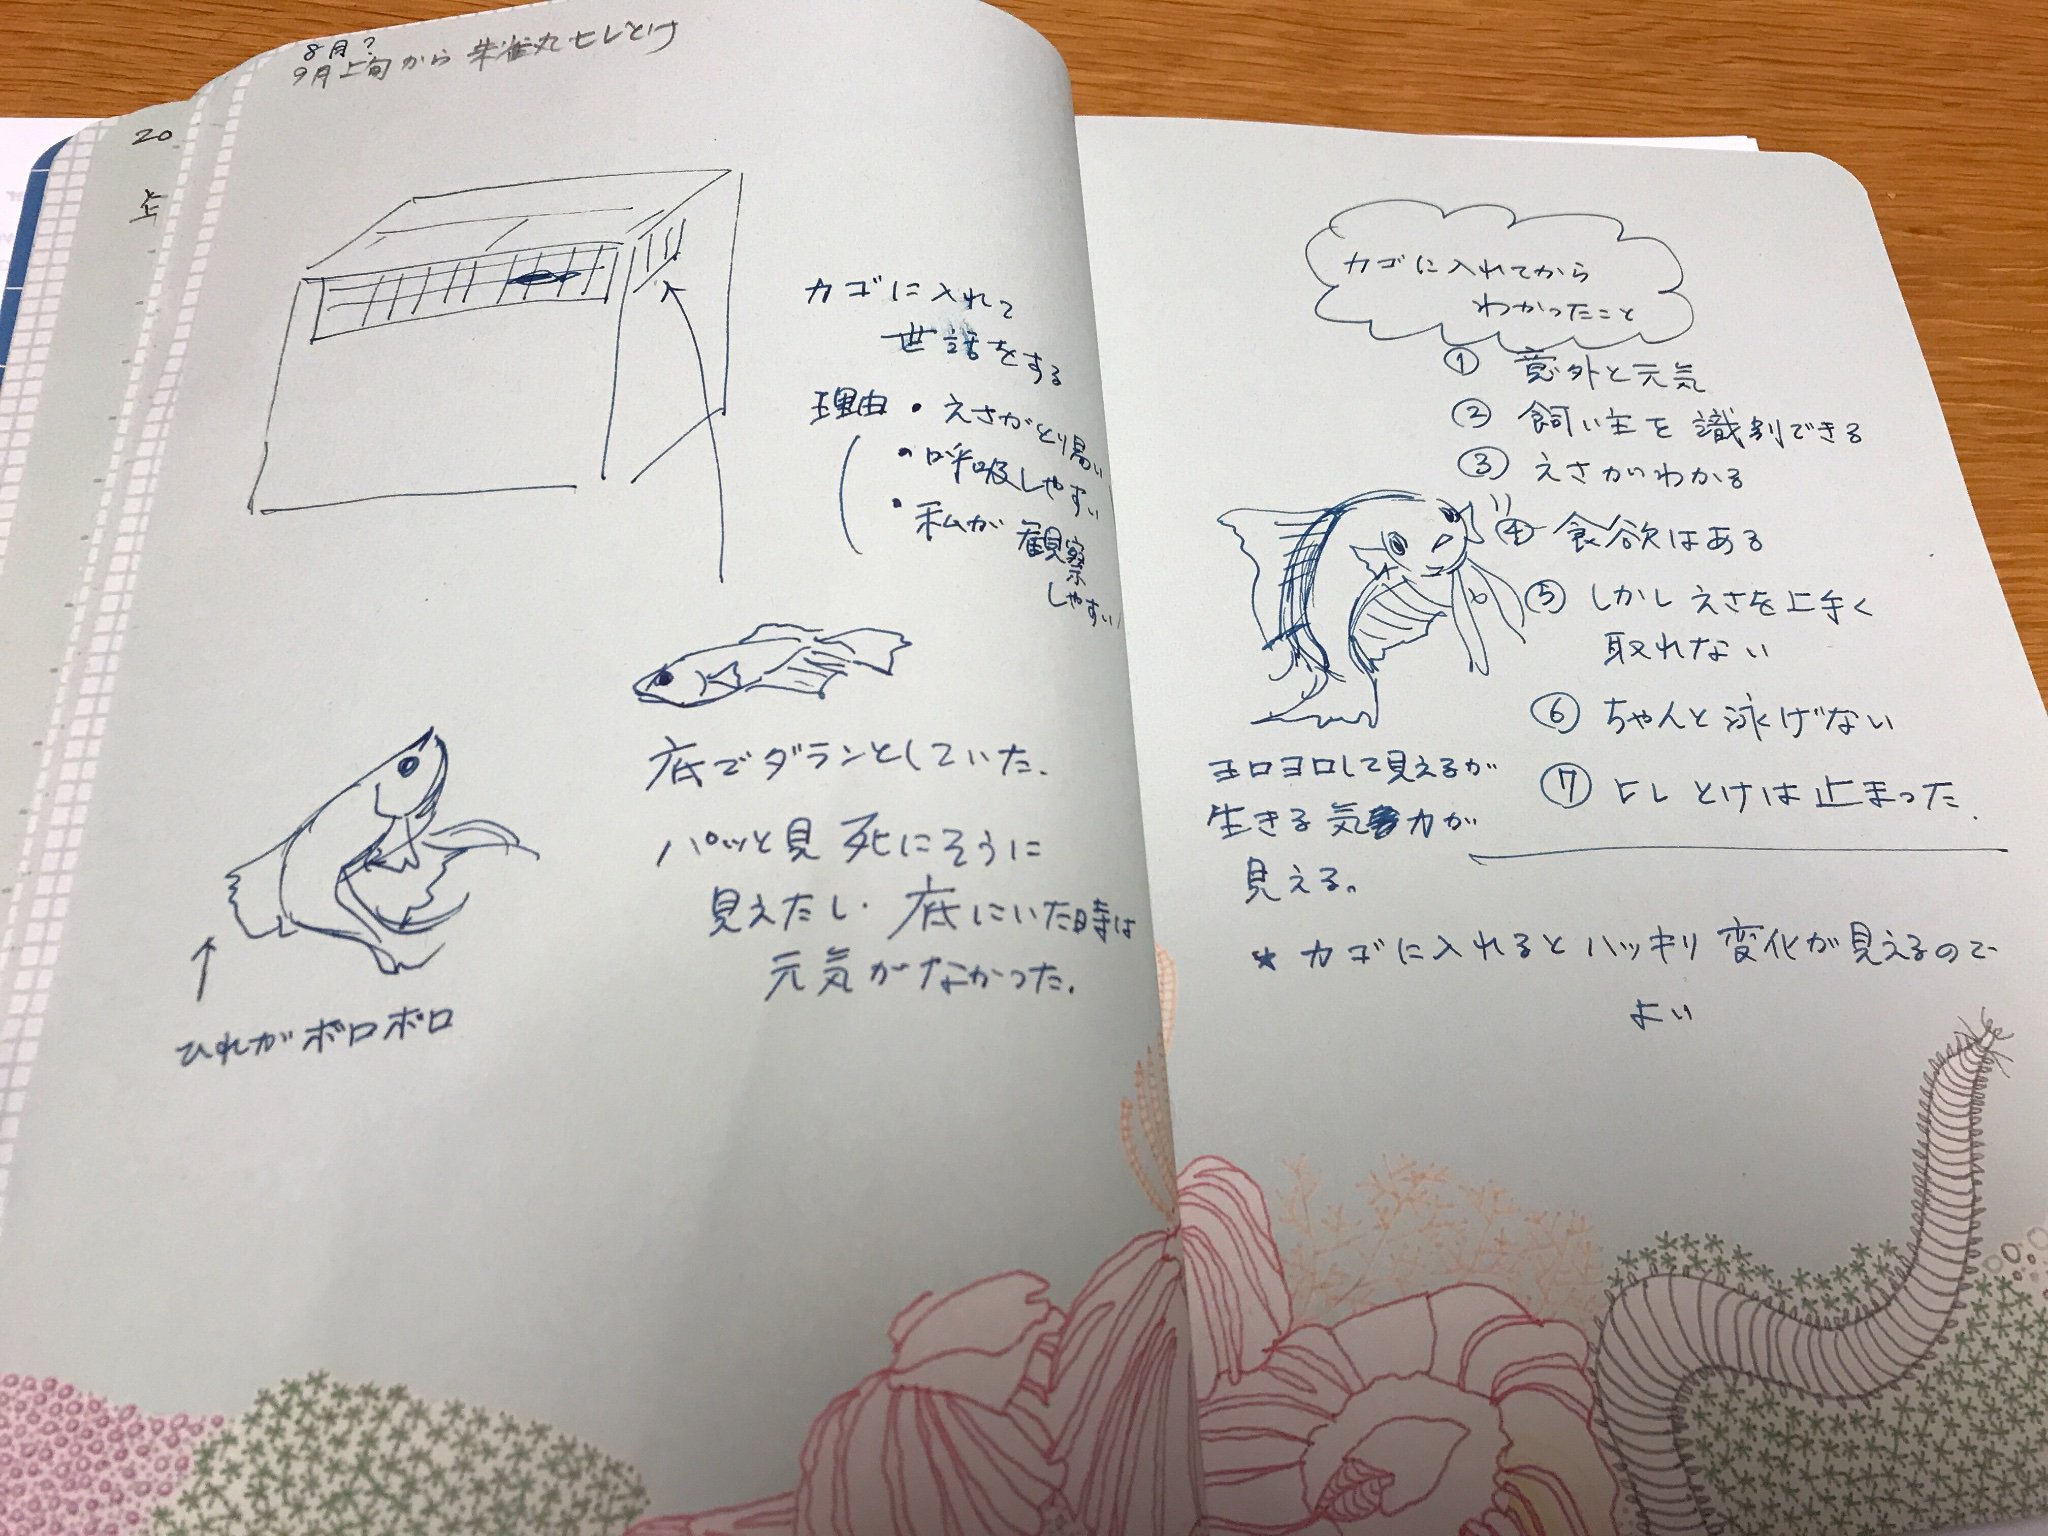 8月?
9月上旬から 朱雀丸ヒレとけ
20
上
カゴに入れて
世話をする
理由・えさがとり易い
・呼吸しやすい
・私が観察
しやすい
底でダランとしていた.
パッと見 死にそうに
見えたし. 底にいた時は
元気がなかった.
ひれがボロボロ
カゴに入れてから
わかったこと
① 意外と元気
② 飼い主を識別できる
③ えさがわかる
④ 食欲はある
⑤ しかしえさを上手く
取れない
⑥ ちゃんと泳げない
⑦ ヒレとけは止まった.
ヨロヨロして見えるが
生きる気力が
見える。
★カゴに入れるとハッキリ変化が見えるので
よい